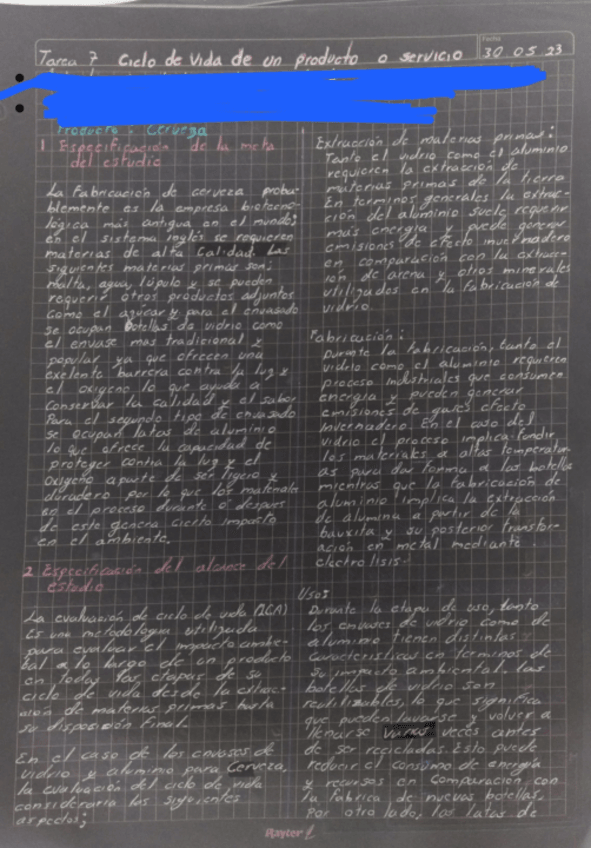 Fecha
30 05 23
Tarea 7 Ciclo de Vida de un producto o servicio
Producto: Cerveza
1 Especificación de la meta
del estudio
La fabricación de cerveza proba-
blemente es la empresa biotecno-
lógica más antigua en el mundo;
en el sistema inglés se requieren
materias de alta Calidad. Las
siguientes materias primas son:
malta, agua, lúpulo y se pueden
requerir otros productos adjuntos
como el azúcar y para el envasado
se ocupan botellas de vidrio como
el envase mas tradicional y
popular ya que ofrecen una
exelente barrera contra la luz y
el oxigeno lo que ayuda a
conservar la calidad y el sabor
Para el segundo tipo de envasado
se ocupan latas de aluminio
lo que ofrece la capacidad de
proteger contra la luz y el
oxigeno aparte de ser ligero y
duradero por lo que los materiales
en el proceso durante o despues
de este genera cierto impacto
en el ambiente.
2 Especificación del alcance del
estudio
La evaluación de ciclo de vida (LCA)
Es una metodologia utilizada
para evaluar el impacto ambie-
tal a lo largo de un producto
en todas las etapas de su
ciclo de vida desde la extrac-
ción de materias primas hasta
su disposición final.
En el caso de los envases de
vidrio y aluminio para Cerveza,
la evaluación del ciclo de vida
consideraria los siguientes
aspectos;
Extracción de materias primas:
Tanto el vidrio como el aluminio
requieren la extracción de
materias primas de la tierra
En terminos generales la extrac-
ción del aluminio suele requerir
más energia y puede generar
emisiones de efecto invernadero
en comparación con la extracci-
ón de arena y otros minerales
utilizados en la fabricación de
vidrio.
Fabricación:
Durante la fabricación, tanto el
vidrio como el aluminio requieren
proceso industriales que consumen
energia y pueden generar
emisiones de gases efecto
Invernadero. En el caso del
vidrio el proceso implica fundir
los materiales a altas temperatur-
as para dar forma a las botellas
mientras que la fabricación de
aluminio implica la extracción
de alumina a partir de la
bauxita y su posterior transfor-
ación en metal mediante
electrolisis.
Usos
Durante la etapa de uso, tanto
los envases de vidrio como de
aluminio tienen distintas
características en terminos de
su impacto ambiental. Las
botellas de vidrio son
reutilizables, lo que significa
que pueden lavarse y volver a
llenarse varias veces antes
de ser recicladas. Esto puede
reducir el consumo de energía
y recursos en comparación con
la fabrica de nuevas botellas.
Por otro lado, las latas de
Rayter